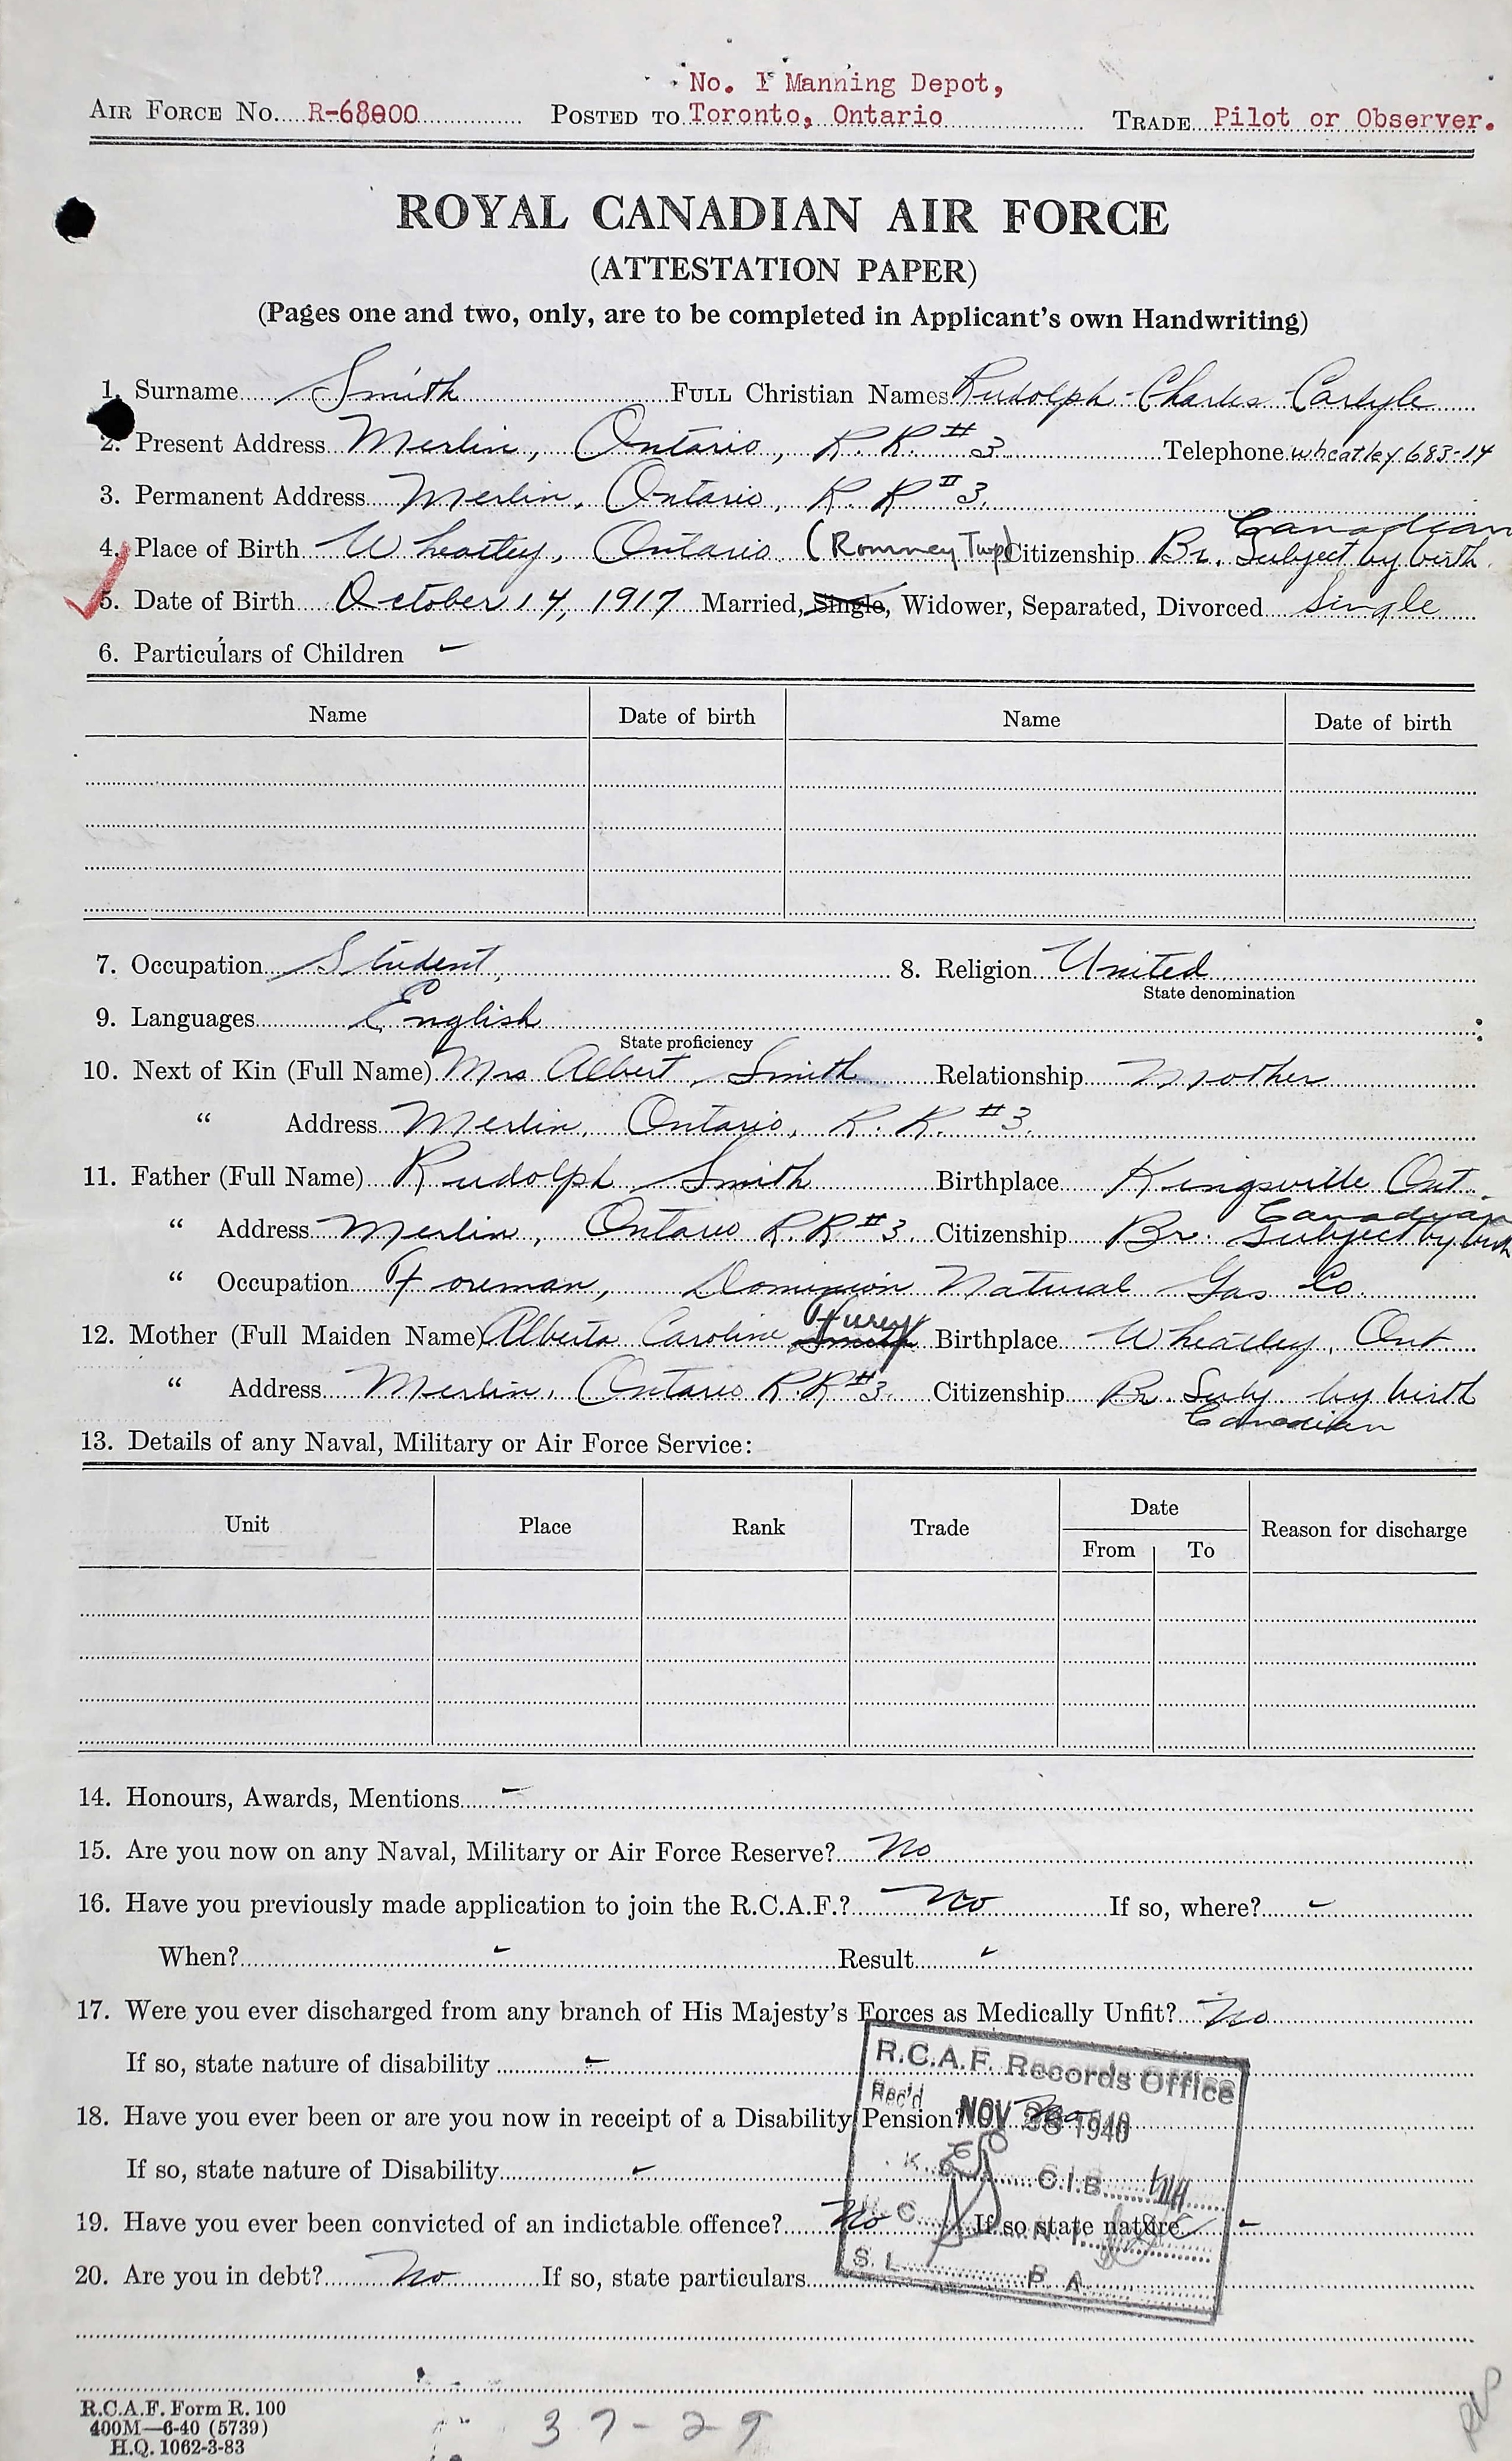 No. 1 Manning Depot,
AIR FORCE NO. R-68000 POSTED TO Toronto, Ontario TRADE Pilot or Observer.
ROYAL CANADIAN AIR FORCE
(ATTESTATION PAPER)
(Pages one and two, only, are to be completed in Applicant's own Handwriting)
1. Surname Smith FULL Christian Names Rudolph Charles Carlyle
2. Present Address Merlin, Ontario, R.R #3 Telephone wheatley 683-14
3. Permanent Address Merlin, Ontario, R. R #3.
Canadian
4. Place of Birth Wheatley, Ontario (Romney Twp) Citizenship Br. Subject by birth.
5. Date of Birth October 14, 1917 Married, Single, Widower, Separated, Divorced Single
6. Particulars of Children -
Name Date of birth Name Date of birth
7. Occupation Student, 8. Religion United
State denomination
9. Languages English
State proficiency
10. Next of Kin (Full Name) Mrs Albert Smith Relationship Mother
" Address Merlin, Ontario, R.R. #3.
11. Father (Full Name) Rudolph Smith Birthplace Kingsville Ont.
Canadian
" Address Merlin, Ontario R.R #3. Citizenship Br. Subject by birth
" Occupation Foreman, Dominion Natural Gas Co.
12. Mother (Full Maiden Name) Alberta Caroline Smith Birthplace Wheatley, Ont
" Address Merlin, Ontario R.R #3. Citizenship Br. Subj. by birth
Canadian
13. Details of any Naval, Military or Air Force Service:
Unit Place Rank Trade Date Reason for discharge
From To
14. Honours, Awards, Mentions -
15. Are you now on any Naval, Military or Air Force Reserve? No
16. Have you previously made application to join the R.C.A.F.? No If so, where? -
When? - Result -
17. Were you ever discharged from any branch of His Majesty's Forces as Medically Unfit? No
R.C.A.F. Records Office
If so, state nature of disability -
Rec'd NOV 28 1940
18. Have you ever been or are you now in receipt of a Disability Pension? No
If so, state nature of Disability -
K. C.I.B.
19. Have you ever been convicted of an indictable offence? No If so state nature -
C. N. I.
S. L. P. A.
20. Are you in debt? No If so, state particulars
R.C.A.F. Form R. 100
400M—6-40 (5739)
H.Q. 1062-3-83
37-29